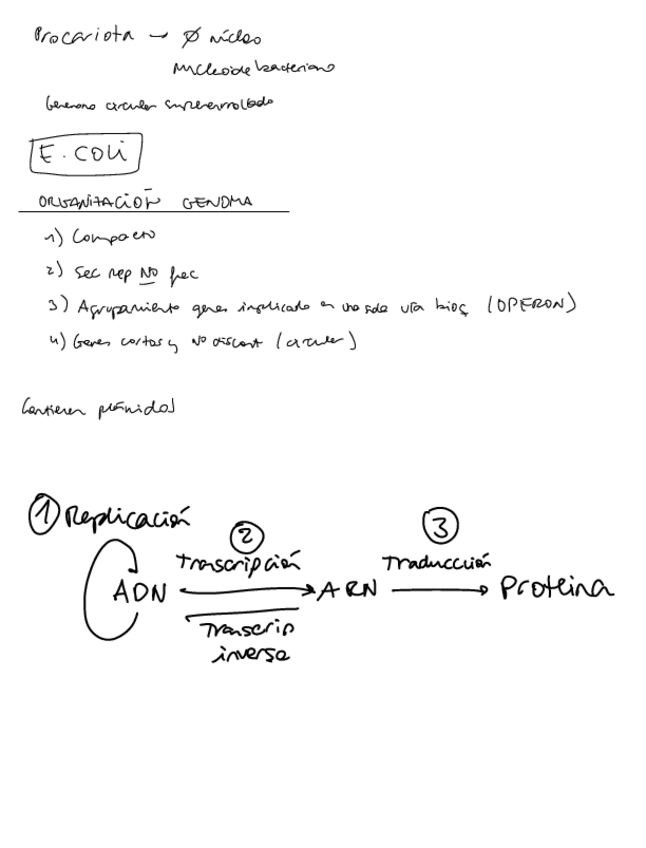 Procariota → ∅ núcleo
Nucleoide bacteriano
Genomo circular superenrollado
E. COLI
ORGANITACIÓN GENOMA
1) Compacto
2) Sec rep NO frec
3) Agrupamiento genes implicado en una sola vía bioq (OPERON)
4) Genes cortos y NO discont (circular)
Contienen plásmidos
① Replicación
② Transcripción
③ Traducción
ADN ARN → Proteina
Transcrip
inversa